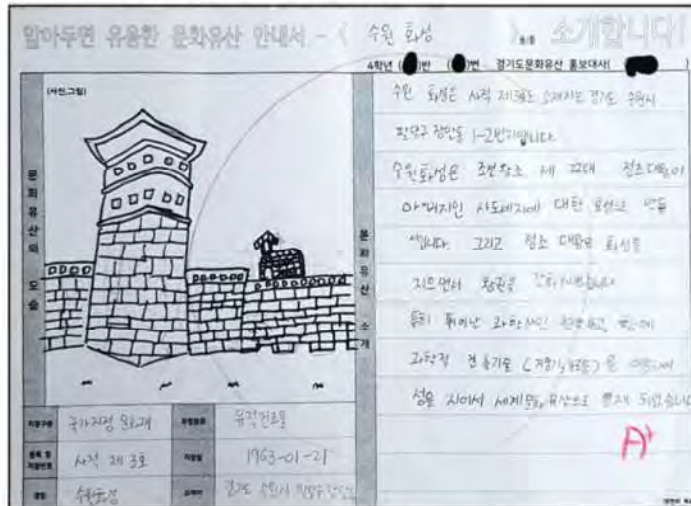 알아두면 유용한 문화유산 안내서 - < 수원 화성 > 을/를 소개합니다!
4학년 ( )반 ( )번 경기도문화유산 홍보대사( )
(사진,그림)
문화유산의 모습
문화유산 소개
수원 화성은 사적 제3호 소재지는 경기도 수원시
팔달구 장안동 1-2번지입니다.
수원화성은 조선왕조 제 22대 정조대왕이
아버지인 사도세자에 대한 효심으로 만든
것입니다. 그리고 정조 대왕은 화성을
지으면서 왕권을
특히 뛰어난 과학자인
과학적 건축기술 (거중기, 녹로 등) 을
성을 지어서 세계문화유산으로 등재 되었습니다
A+
지정구분 국가지정 문화재 유적건조물
사적 제 3호 지정일 1963-01-21
수원화성 소재지 경기도 수원시